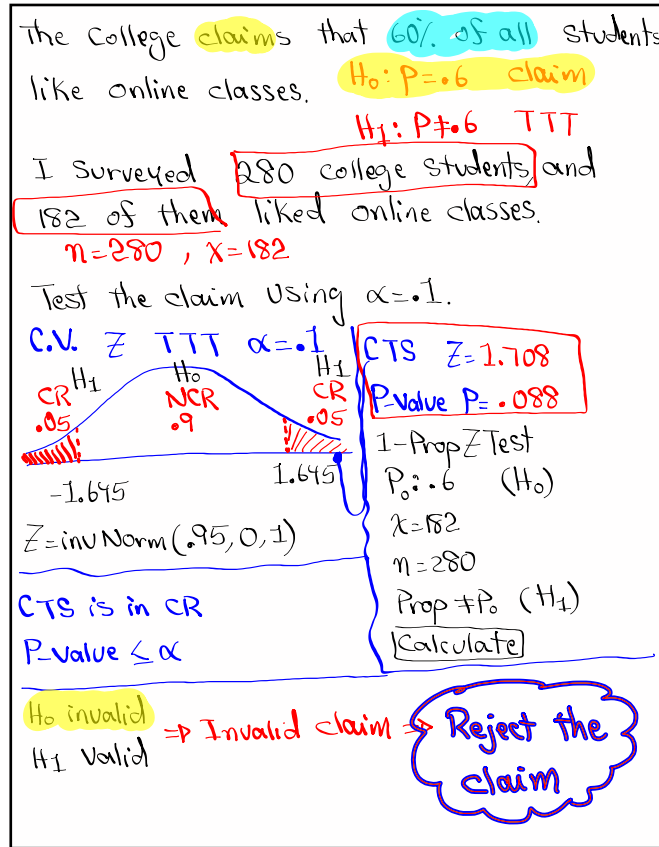 The College claims that 60% of all students
like online classes. H₀: P=.6 claim
H₁: P≠.6 TTT
I Surveyed 280 college students, and
182 of them liked online classes.
n=280, x=182
Test the claim Using α=.1.
C.V. Z TTT α=.1
H₁ H₀ H₁
CR NCR CR
.05 .9 .05
-1.645 1.645
Z=invNorm(.95,0,1)
CTS is in CR
P-Value ≤ α
CTS Z=1.708
P-Value P=.088
1-PropZTest
P₀:.6 (H₀)
x=182
n=280
Prop≠P₀ (H₁)
Calculate
H₀ invalid
H1 Valid
⇒ Invalid claim ⇒
Reject the
claim